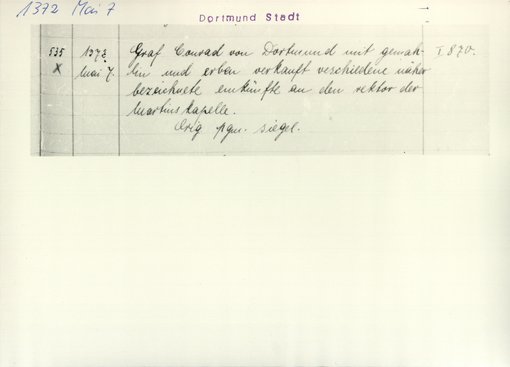 1372 Mai 7
Dortmund Stadt
535 1372 Graf Conrad von Dortmund mit gemah- I 870.
X Mai 7. lin und erben verkauft verschiedene näher
bezeichnete einkünfte an den rektor der
Martinskapelle.
Orig pgm. siegel.